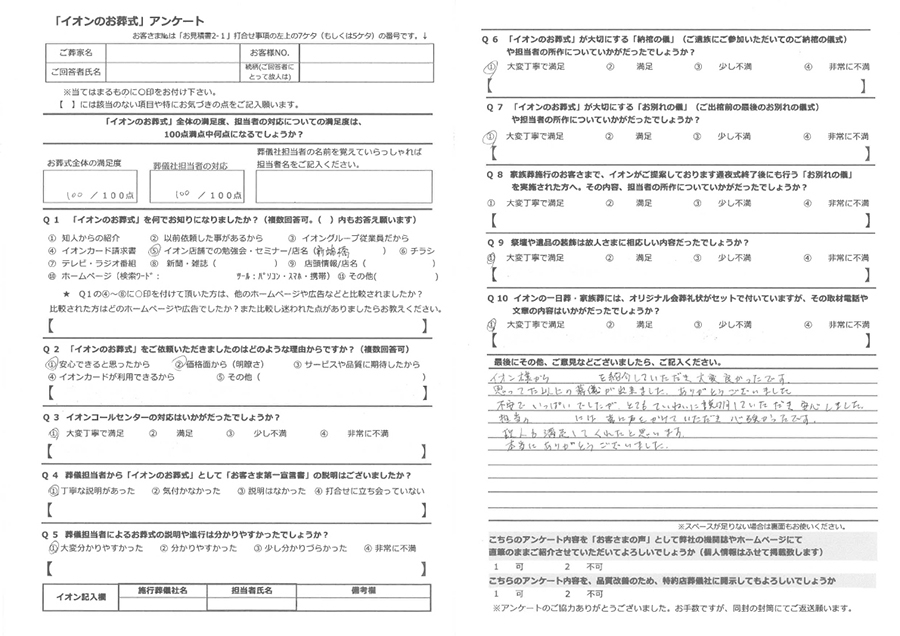 「イオンのお葬式」アンケート
お客さまNo.は「お見積書2-1」打合せ事項の左上の7ケタ（もしくは5ケタ）の番号です。↓
ご葬家名 お客様NO.
ご回答者氏名 続柄(ご回答者にとって故人は)
※当てはまるものに○印をお付け下さい。
【　】には該当のない項目や特にお気づきの点をご記入願います。
「イオンのお葬式」全体の満足度、担当者の対応についての満足度は、
100点満点中何点になるでしょうか？
お葬式全体の満足度 葬儀社担当者の対応 葬儀社担当者の名前を覚えていらっしゃれば
担当者名をご記入ください。
100 / 100点 100 / 100点
Q 1 「イオンのお葬式」を何でお知りになりましたか？（複数回答可。（　）内もお答え願います）
① 知人からの紹介 ② 以前依頼した事があるから ③ イオングループ従業員だから
④ イオンカード請求書 ⑤ イオン店舗での勉強会・セミナー/店名（ ） ⑥ チラシ
⑦ テレビ・ラジオ番組 ⑧ 新聞・雑誌（ ） ⑨ 店頭情報/店名（ ）
⑩ ホームページ（検索ワード： ツール：パソコン・スマホ・携帯） ⑪ その他（ ）
★ Q１の④～⑧に○印を付けて頂いた方は、他のホームページや広告などと比較されましたか？
比較された方はどのホームページや広告でしたか？また比較し迷われた点がありましたらお教えください。
【 】
Q 2 「イオンのお葬式」をご依頼いただきましたのはどのような理由からですか？（複数回答可）
①安心できると思ったから ②価格面から（明瞭さ） ③ サービスや品質に期待したから
④ イオンカードが利用できるから ⑤ その他（ ）
【 】
Q 3 イオンコールセンターの対応はいかがだったでしょうか？
① 大変丁寧で満足 ② 満足 ③ 少し不満 ④ 非常に不満
【 】
Q 4 葬儀担当者から「イオンのお葬式」として「お客さま第一宣言書」の説明はございましたか？
①丁寧な説明があった ② 気付かなかった ③ 説明はなかった ④ 打合せに立ち会っていない
【 】
Q 5 葬儀担当者によるお葬式の説明や進行は分かりやすかったでしょうか？
①大変分かりやすかった ② 分かりやすかった ③ 少し分かりづらかった ④ 非常に不満
【 】
イオン記入欄 施行葬儀社名 担当者氏名 備考欄
Q 6 「イオンのお葬式」が大切にする「納棺の儀」（ご遺族にご参加いただいてのご納棺の儀式）
や担当者の所作についていかがだったでしょうか？
① 大変丁寧で満足 ② 満足 ③ 少し不満 ④ 非常に不満
【 】
Q 7 「イオンのお葬式」が大切にする「お別れの儀」（ご出棺前の最後のお別れの儀式）
や担当者の所作についていかがだったでしょうか？
① 大変丁寧で満足 ② 満足 ③ 少し不満 ④ 非常に不満
【 】
Q 8 家族葬施行のお客さまで、イオンがご提案しております通夜式終了後にも行う「お別れの儀」
を実施された方へ。その内容、担当者の所作についていかがだったでしょうか？
① 大変丁寧で満足 ② 満足 ③ 少し不満 ④ 非常に不満
【 】
Q 9 祭壇や遺品の装飾は故人さまに相応しい内容だったでしょうか？
① 大変丁寧で満足 ② 満足 ③ 少し不満 ④ 非常に不満
【 】
Q 10 イオンの一日葬・家族葬には、オリジナル会葬礼状がセットで付いていますが、その取材電話や
文章の内容はいかがだったでしょうか？
① 大変丁寧で満足 ② 満足 ③ 少し不満 ④ 非常に不満
【 】
最後にその他、ご意見などございましたら、ご記入ください。
イオン様から を紹介していただき大変良かったです。
思ってた以上の葬儀が出来ました。ありがとうございました
不安でいっぱいでしたが、とてもていねいに説明していただき安心しました。
担当の には 常に声をかけていただき 心強かったです。
故人も満足してくれたと思います。
本当にありがとうございました。
※スペースが足りない場合は裏面もお使いください。
こちらのアンケート内容を「お客さまの声」として弊社の機関誌やホームページにて
直筆のままご紹介させていただいてよろしいでしょうか（個人情報はふせて掲載致します）
1 可 2 不可
こちらのアンケート内容を、品質改善のため、特約店葬儀社に開示してもよろしいでしょうか
1 可 2 不可
※アンケートのご協力ありがとうございました。お手数ですが、同封の封筒にてご返送願います。